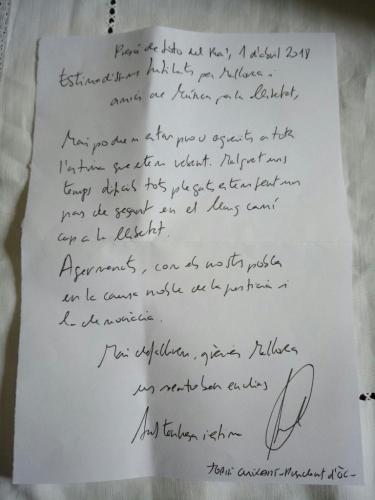 Presó de Soto del Real, 1 d'abril 2018
Estimadíssims Mallorca i
amics de Música per la Llibertat,
Mai podrem estar prou agraïts a tota
l'estima que estem rebent. Malgrat uns
temps difícils tots plegats estem fent un
pas de gegant en el llarg camí
cap a la llibertat.
Agermanats, com els nostres pobles
en la causa noble de la justícia i
la democràcia.
Mai defallirem, gràcies Mallorca
us sentim ben endins
Amb tendresa i estima
Jordi Cuixart